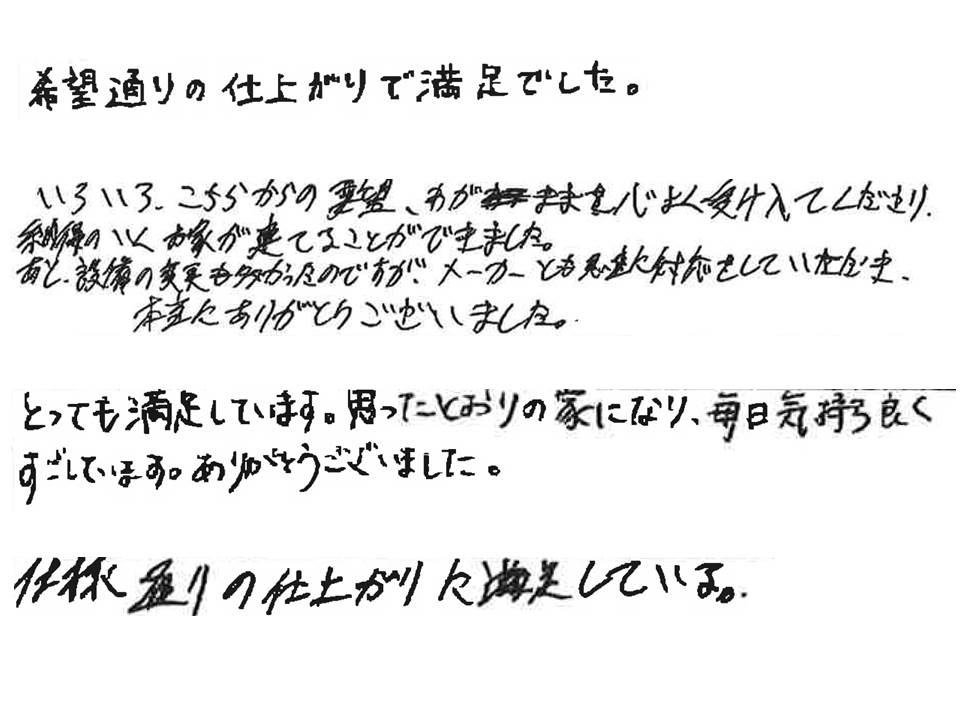 希望通りの仕上がりで満足でした。
いろいろ、こちらからの要望、わがままを心よく受け入てくださり、
納得のいくお家が建てることができました。
あと、設備の変更も多かったのですが、メーカーとも迅速に対応をしていただき、
本当にありがとうございました。
とっても満足しています。思ったとおりの家になり、毎日気持ち良く
すごしています。ありがとうございました。
仕様通りの仕上がりに満足している。